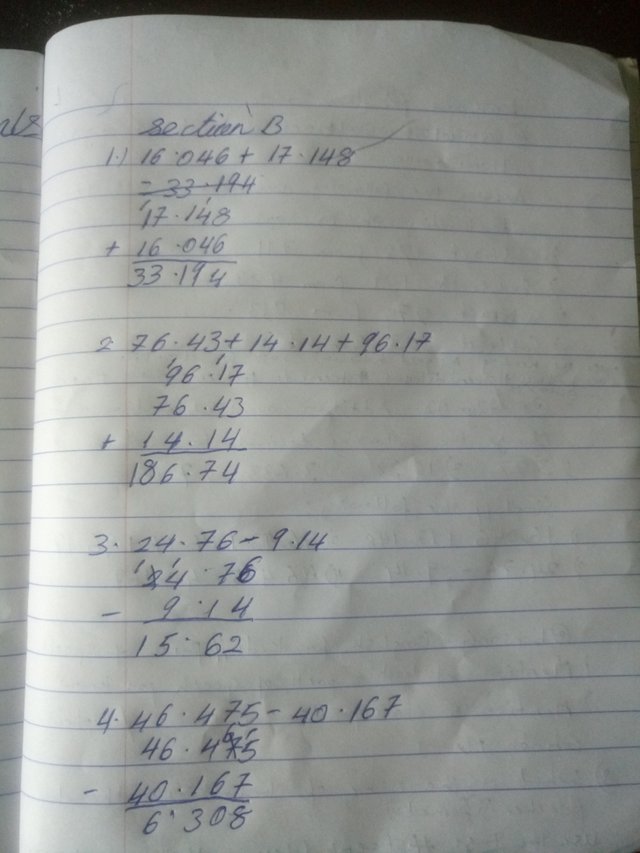 Section B
1.) 16.046 + 17.148
= 33.194
17.148
+ 16.046
33.194
2. 76.43 + 14.14 + 96.17
96.17
76.43
+ 14.14
186.74
3. 24.76 - 9.14
24.76
- 9.14
15.62
4. 46.475 - 40.167
46.475
- 40.167
6.308